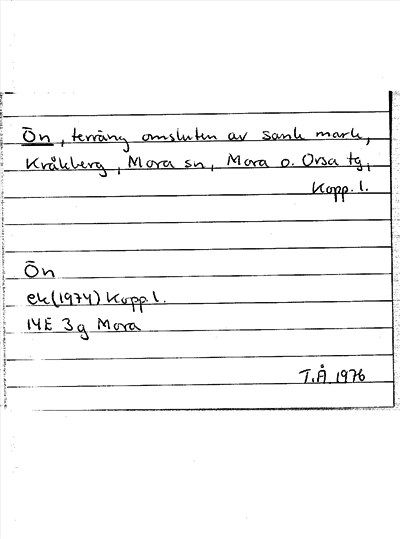 Ön, terräng omsluten av sank mark,
Kråkberg, Mora sn, Mora o. Orsa tg,
Kopp. l.
Ön
ek (1974) Kopp l.
14E 3g Mora
T.Å 1976